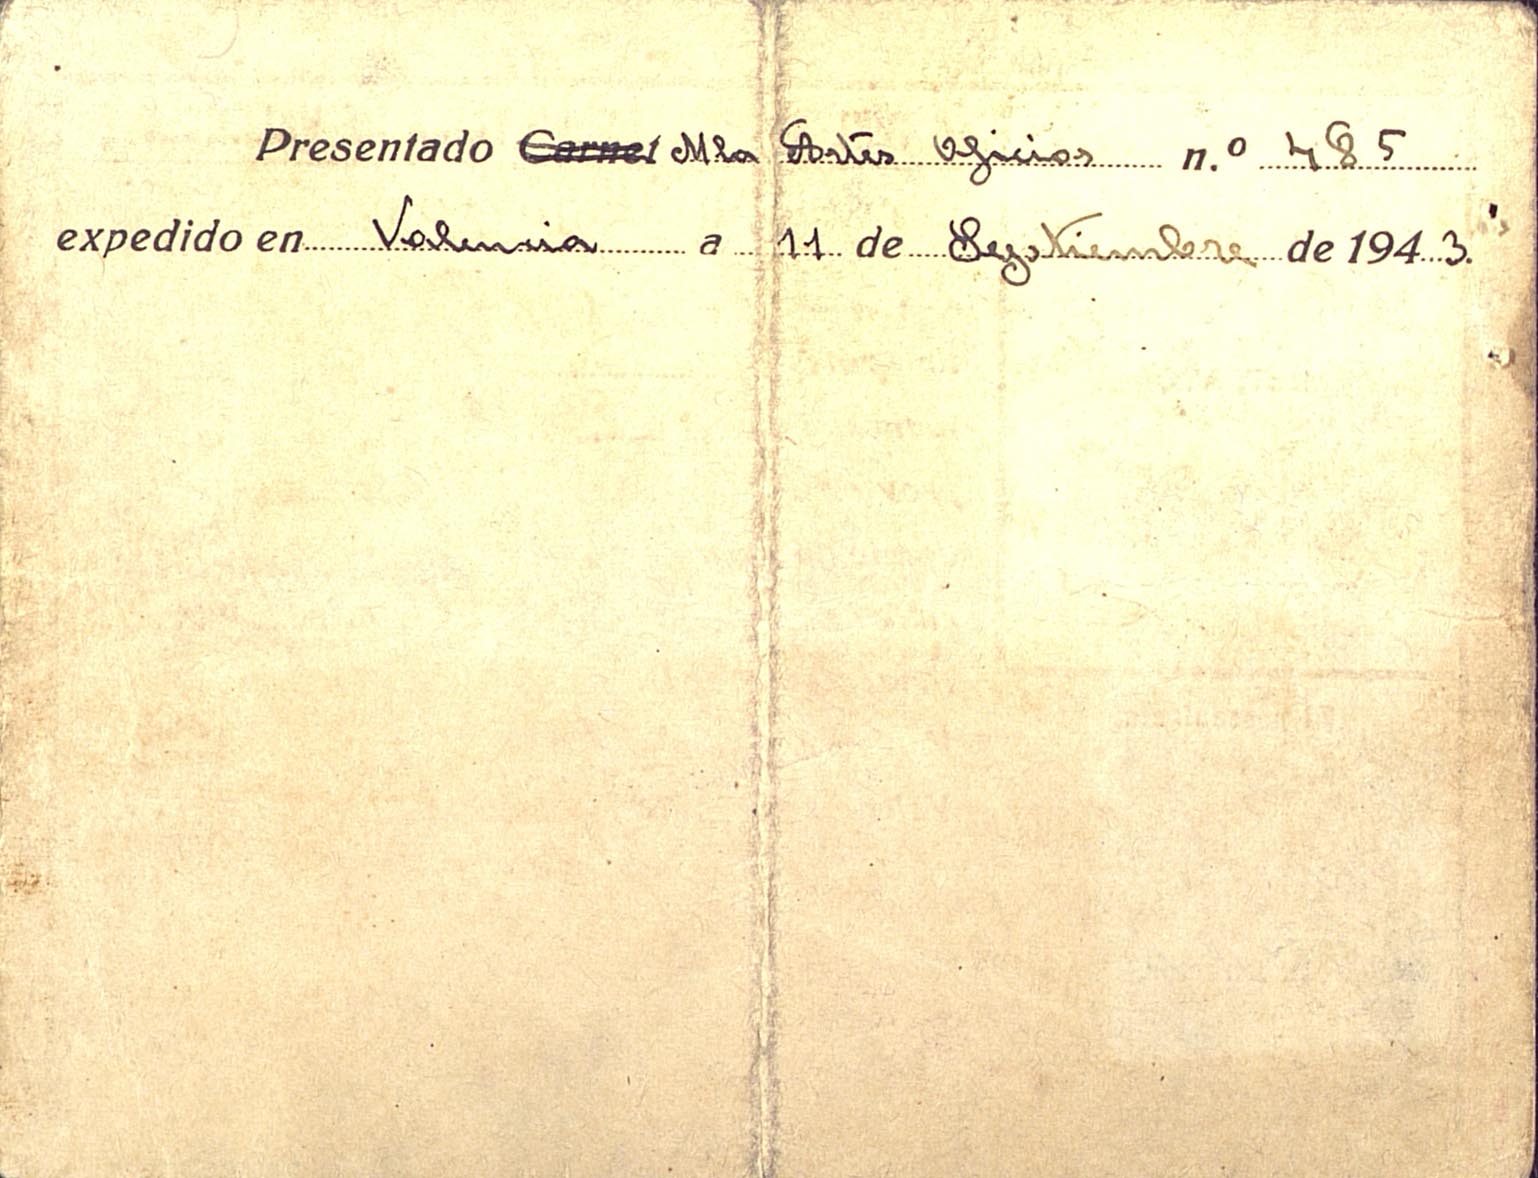 Presentado Carnet Mla Artes Oficios n.º 485
expedido en Valencia a 11 de Septiembre de 1943.